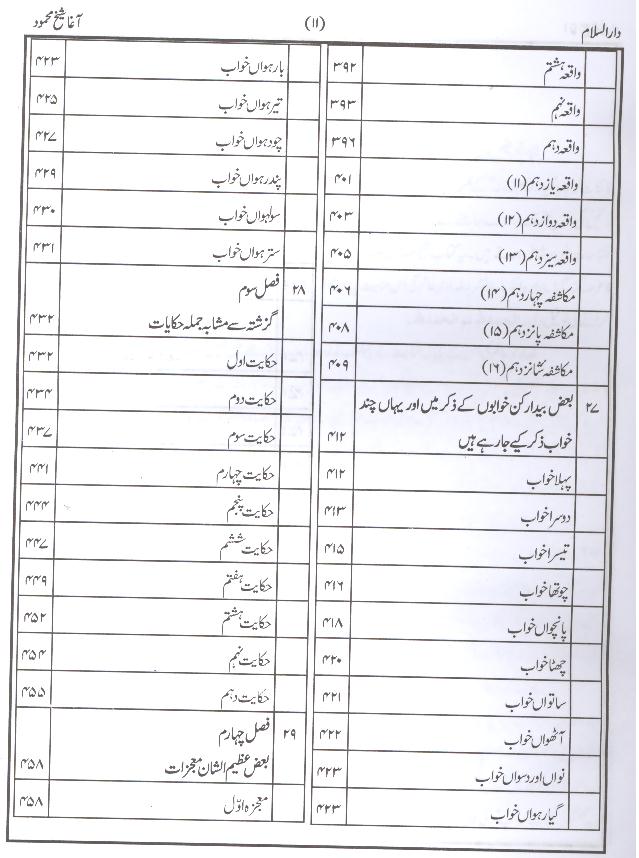 دارالسلام (۱۱) آغا شیخ محمود
واقعہ ہشتم ۳۹۲
واقعہ نہم ۳۹۳
واقعہ دہم ۳۹۶
واقعہ یازدہم (۱۱) ۴۰۱
واقعہ دوازدہم (۱۲) ۴۰۳
واقعہ سیزدہم (۱۳) ۴۰۵
مکاشفہ چہاردہم (۱۴) ۴۰۶
مکاشفہ پانزدہم (۱۵) ۴۰۸
مکاشفہ شانزدہم (۱۶) ۴۰۹
۲۷ بعض بیدارکن خوابوں کے ذکر میں اور یہاں چند
خواب ذکر کیے جا رہے ہیں ۴۱۲
پہلا خواب ۴۱۲
دوسرا خواب ۴۱۳
تیسرا خواب ۴۱۵
چوتھا خواب ۴۱۶
پانچواں خواب ۴۱۸
چھٹا خواب ۴۲۰
ساتواں خواب ۴۲۱
آٹھواں خواب ۴۲۲
نواں اور دسواں خواب ۴۲۳
گیارہواں خواب ۴۲۳
بارہواں خواب ۴۲۳
تیرہواں خواب ۴۲۵
چودہواں خواب ۴۲۷
پندرہواں خواب ۴۲۹
سولہواں خواب ۴۳۰
سترہواں خواب ۴۳۱
۲۸ فصل سوم
گزشتہ سے مشابہ جملہ حکایات ۴۳۲
حکایت اول ۴۳۲
حکایت دوم ۴۳۴
حکایت سوم ۴۳۷
حکایت چہارم ۴۴۱
حکایت پنجم ۴۴۴
حکایت ششم ۴۴۷
حکایت ہفتم ۴۴۹
حکایت ہشتم ۴۵۲
حکایت نہم ۴۵۴
حکایت دہم ۴۵۵
۲۹ فصل چہارم
بعض عظیم الشان معجزات ۴۵۸
معجزہ اوّل ۴۵۸